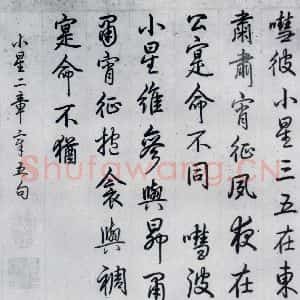 嘒彼小星三五在東
肅肅宵征夙夜在
公寔命不同 嘒彼
小星維參與昴肅
肅宵征抱衾與裯
寔命不猶
小星二章章五句
Shufawang.CN